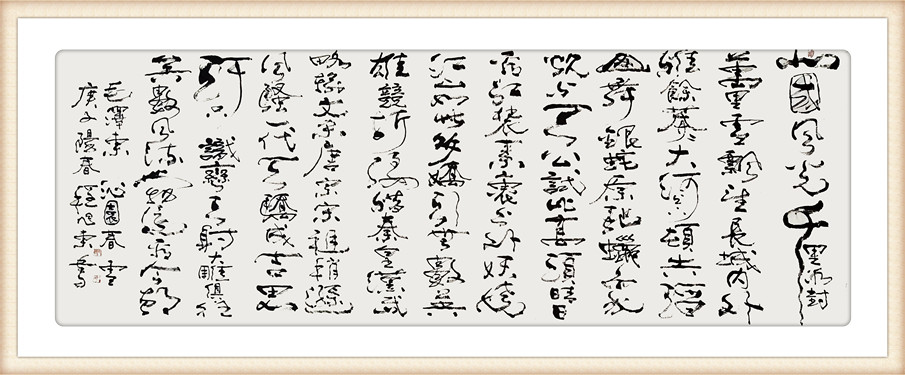 北國風光千里冰封
萬里雪飄望長城內外
惟餘莽莽大河上下頓失滔
滔山舞銀蛇原馳蠟象欲
與天公試比高須晴日
看紅裝素裹分外妖嬈
江山如此多嬌引無數英
雄競折腰惜秦皇漢武
略輸文采唐宗宋祖稍遜
風騷一代天驕成吉思
汗只識彎弓射大雕俱往
矣數風流人物還看今朝
毛澤東 沁園春 雪
庚子陽春 旭東書